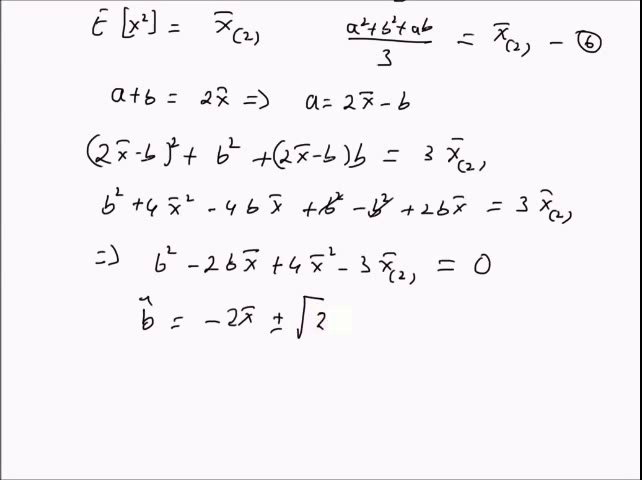 E [x²] = x̄₍₂₎   (a²+b²+ab)/3 = x̄₍₂₎ - ⑥
a+b = 2x̄ => a = 2x̄ - b
(2x̄-b)² + b² + (2x̄-b)b = 3 x̄₍₂₎
b² + 4x̄² - 4bx̄ + b² - b² + 2bx̄ = 3 x̄₍₂₎
=> b² - 2bx̄ + 4x̄² - 3x̄₍₂₎ = 0
b̂ = -2x̄ ± √2